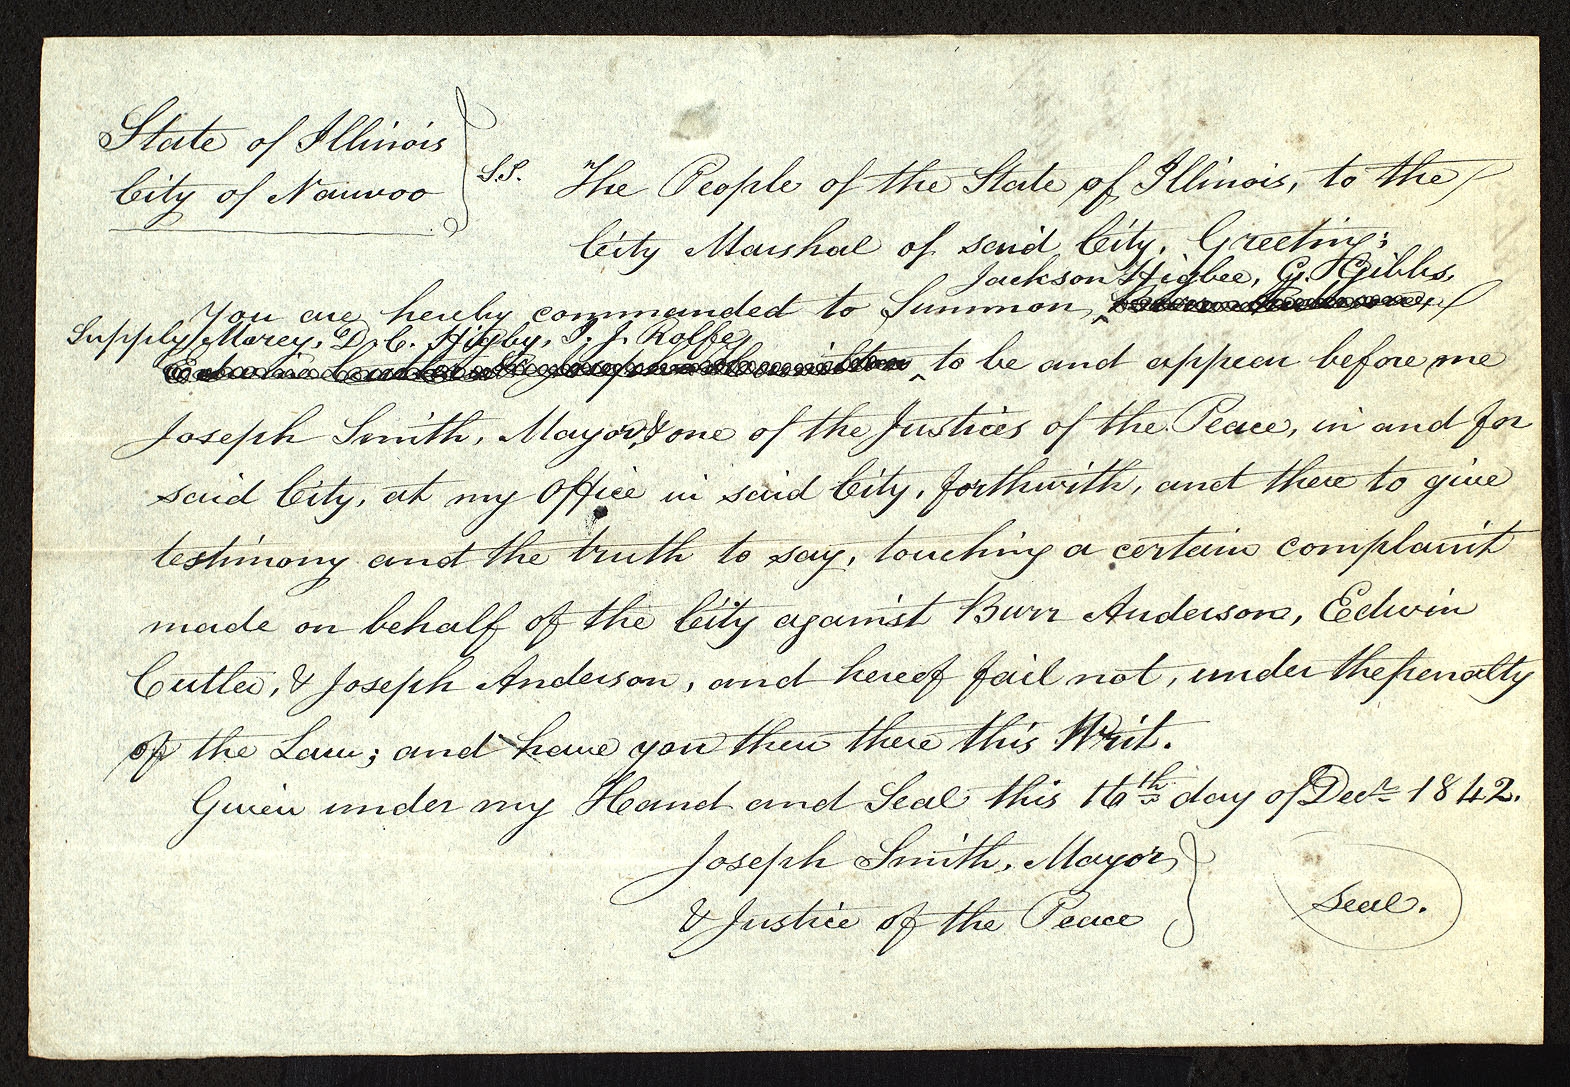 State of Illinois
City of Nauvoo
S.S. The People of the State of Illinois, to the
City Marshal of said City, Greeting;
Jackson Higbee, G. Gibbs,
You are hereby commanded to Summon
Supply Morey, D. C. Higby, T. J. Rolfe,
to be and appear before me
Joseph Smith, Mayor, & one of the Justices of the Peace, in and for
said City, at my Office in said City, forthwith, and there to give
testimony and the truth to say, touching a certain complaint
made on behalf of the City against Burr Anderson, Edwin
Cutler, & Joseph Anderson, and hereof fail not, under the penalty
of the Law; and have you then there this Writ.
Given under my Hand and Seal this 16th day of Decr 1842.
Joseph Smith, Mayor
& Justice of the Peace
Seal.